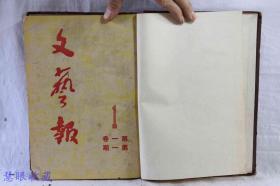 文藝報
1
第一卷
第一期
慧眼收藏